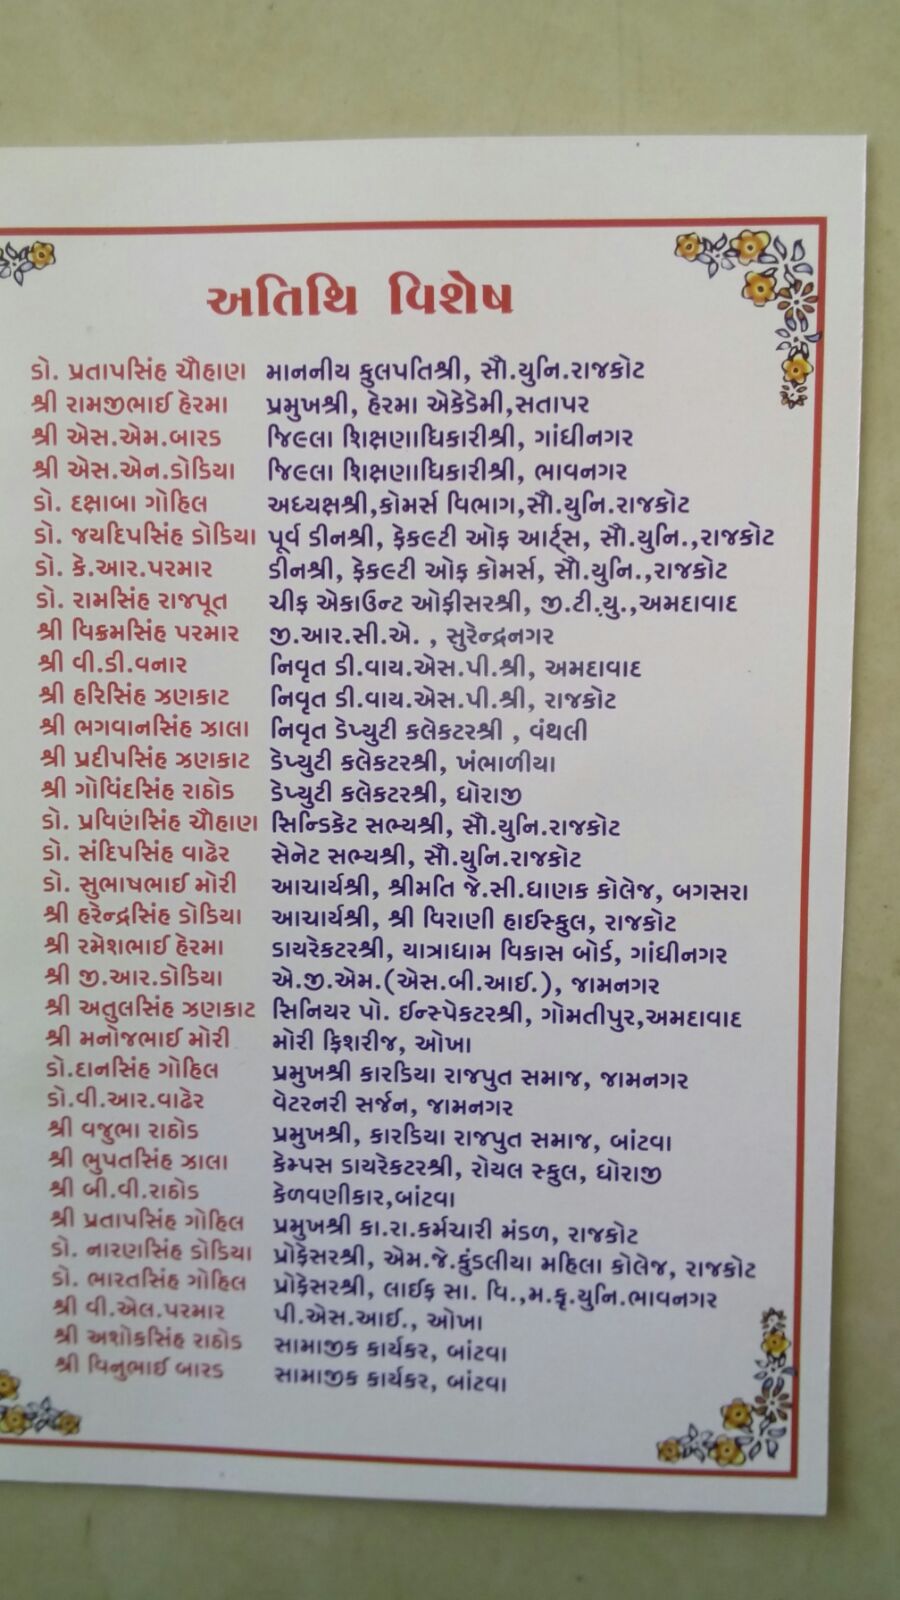 અતિથિ વિશેષ
ડો. પ્રતાપસિંહ ચૌહાણ માનનીય કુલપતિશ્રી, સૌ.યુનિ.રાજકોટ
શ્રી રામજીભાઈ હેરમા પ્રમુખશ્રી, હેરમા એકેડેમી,સતાપર
શ્રી એસ.એમ.બારડ જિલ્લા શિક્ષણાધિકારીશ્રી, ગાંધીનગર
શ્રી એસ.એન.ડોડિયા જિલ્લા શિક્ષણાધિકારીશ્રી, ભાવનગર
ડો. દક્ષાબા ગોહિલ અધ્યક્ષશ્રી,કોમર્સ વિભાગ,સૌ.યુનિ.રાજકોટ
ડો. જયદિપસિંહ ડોડિયા પૂર્વ ડીનશ્રી, ફેકલ્ટી ઓફ આર્ટ્સ, સૌ.યુનિ.,રાજકોટ
ડો. કે.આર.પરમાર ડીનશ્રી, ફેકલ્ટી ઓફ કોમર્સ, સૌ.યુનિ.,રાજકોટ
ડો. રામસિંહ રાજપૂત ચીફ એકાઉન્ટ ઓફીસરશ્રી, જી.ટી.યુ.,અમદાવાદ
શ્રી વિક્રમસિંહ પરમાર જી.આર.સી.એ. , સુરેન્દ્રનગર
શ્રી વી.ડી.વનાર નિવૃત ડી.વાય.એસ.પી.શ્રી, અમદાવાદ
શ્રી હરિસિંહ ઝણકાટ નિવૃત ડી.વાય.એસ.પી.શ્રી, રાજકોટ
શ્રી ભગવાનસિંહ ઝાલા નિવૃત ડેપ્યુટી કલેકટરશ્રી , વંથલી
શ્રી પ્રદીપસિંહ ઝણકાટ ડેપ્યુટી કલેકટરશ્રી, ખંભાળીયા
શ્રી ગોવિંદસિંહ રાઠોડ ડેપ્યુટી કલેકટરશ્રી, ધોરાજી
ડો. પ્રવિણસિંહ ચૌહાણ સિન્ડિકેટ સભ્યશ્રી, સૌ.યુનિ.રાજકોટ
ડો. સંદિપસિંહ વાઢેર સેનેટ સભ્યશ્રી, સૌ.યુનિ.રાજકોટ
ડો. સુભાષભાઈ મોરી આચાર્યશ્રી, શ્રીમતિ જે.સી.ધાણક કોલેજ, બગસરા
શ્રી હરેન્દ્રસિંહ ડોડિયા આચાર્યશ્રી, શ્રી વિરાણી હાઈસ્કુલ, રાજકોટ
શ્રી રમેશભાઈ હેરમા ડાયરેકટરશ્રી, યાત્રાધામ વિકાસ બોર્ડ, ગાંધીનગર
શ્રી જી.આર.ડોડિયા એ.જી.એમ.(એસ.બી.આઈ.), જામનગર
શ્રી અતુલસિંહ ઝણકાટ સિનિયર પો. ઈન્સ્પેકટરશ્રી, ગોમતીપુર,અમદાવાદ
શ્રી મનોજભાઈ મોરી મોરી ફિશરીજ, ઓખા
ડો.દાનસિંહ ગોહિલ પ્રમુખશ્રી કારડિયા રાજપુત સમાજ, જામનગર
ડો.વી.આર.વાઢેર વેટરનરી સર્જન, જામનગર
શ્રી વજુભા રાઠોડ પ્રમુખશ્રી, કારડિયા રાજપુત સમાજ, બાંટવા
શ્રી ભુપતસિંહ ઝાલા કેમ્પસ ડાયરેકટરશ્રી, રોયલ સ્કુલ, ધોરાજી
શ્રી બી.વી.રાઠોડ કેળવણીકાર,બાંટવા
શ્રી પ્રતાપસિંહ ગોહિલ પ્રમુખશ્રી કા.રા.કર્મચારી મંડળ, રાજકોટ
ડો. નારણસિંહ ડોડિયા પ્રોફેસરશ્રી, એમ.જે.કુંડલીયા મહિલા કોલેજ, રાજકોટ
ડો. ભારતસિંહ ગોહિલ પ્રોફેસરશ્રી, લાઈફ સા. વિ.,મ.કૃ.યુનિ.ભાવનગર
શ્રી વી.એલ.પરમાર પી.એસ.આઈ., ઓખા
શ્રી અશોકસિંહ રાઠોડ સામાજીક કાર્યકર, બાંટવા
શ્રી વિનુભાઈ બારડ સામાજીક કાર્યકર, બાંટવા